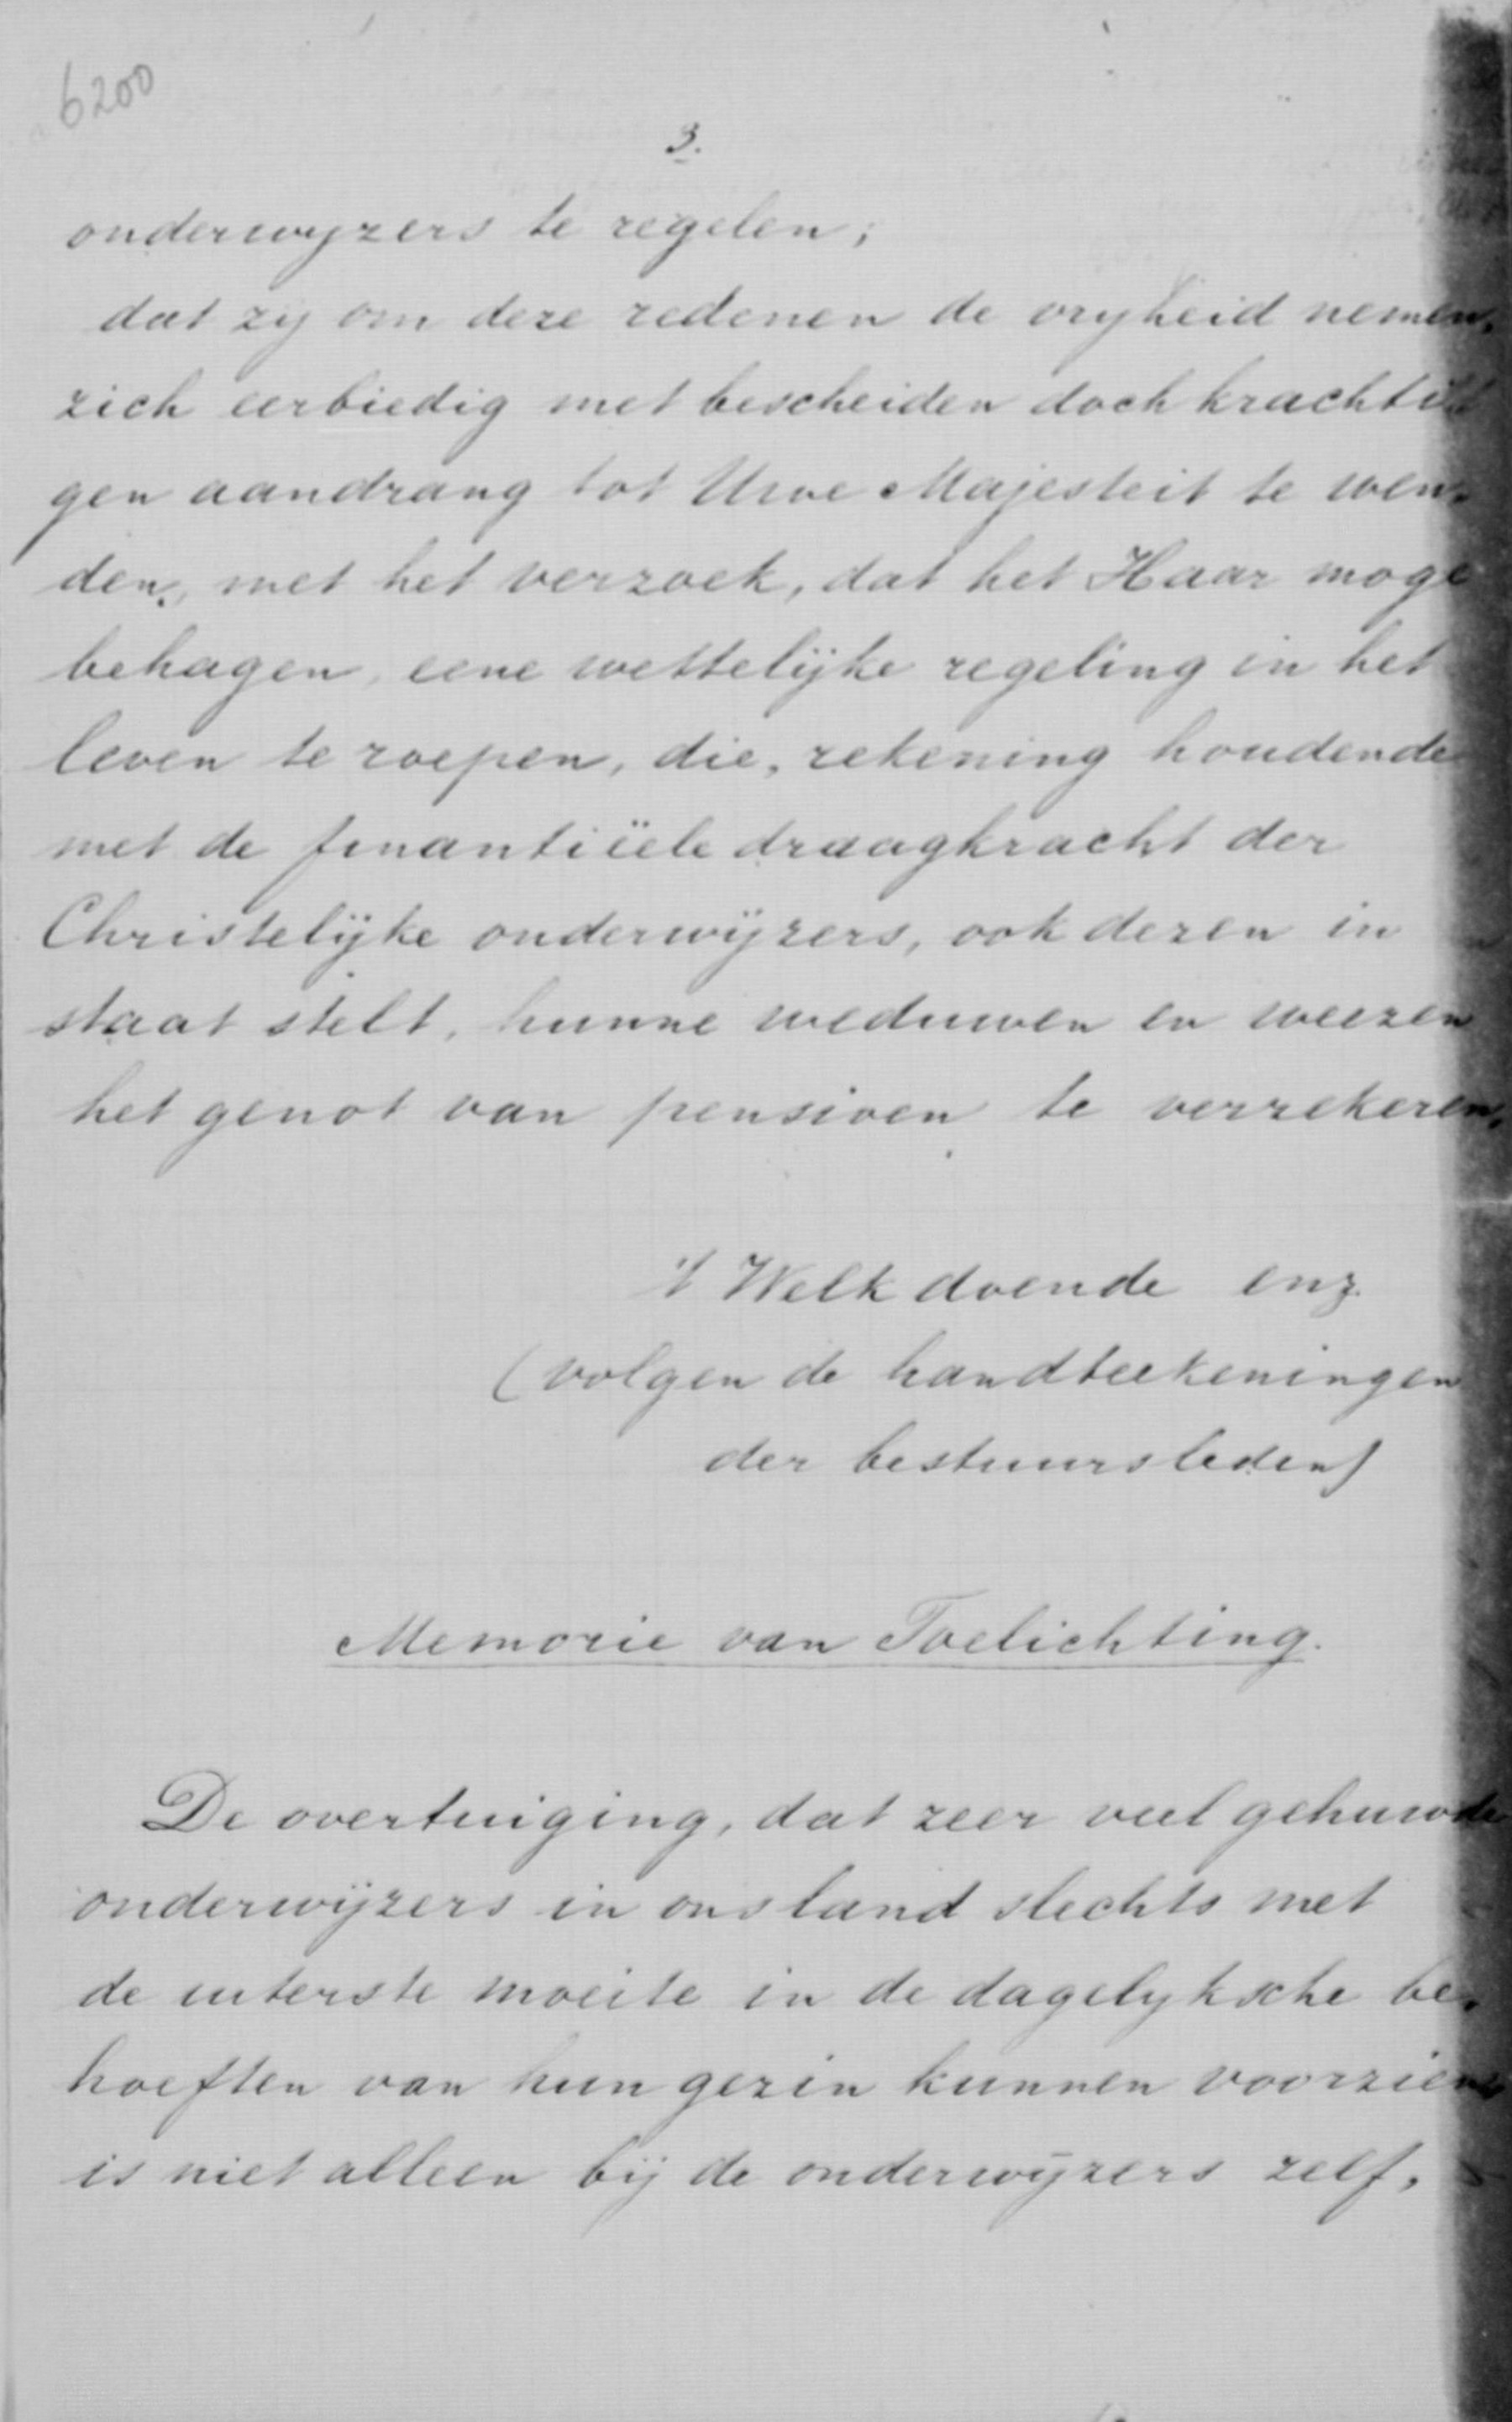 6200
3.
onderwyzers te regelen;
dat zy om deze redenen de vryheid nemen,
zich eerbiedig met bescheiden doch krachti
gen aandrang tot Uwe Majesteit te wen-
den, met het verzoek, dat het Haar moge
behagen, eene wettelijke regeling in het
leven te roepen, die, rekening houdende
met de finantiëele draagkracht der
Christelijke onderwijzers, ook dezen in
staat stelt, hunne weduwen en weezen
het genot van pensioen te verzekeren.
't Welk doende enz.
(volgen de handteekeningen
der bestuursleden)
Memorie van Toelichting.
De overtuiging, dat zeer veel gehuwde
onderwijzers in ons land slechts met
de uiterste moeite in de dagelyksche be-
hoeften van hun gezin kunnen voorzien
is niet alleen bij de onderwijzers zelf,